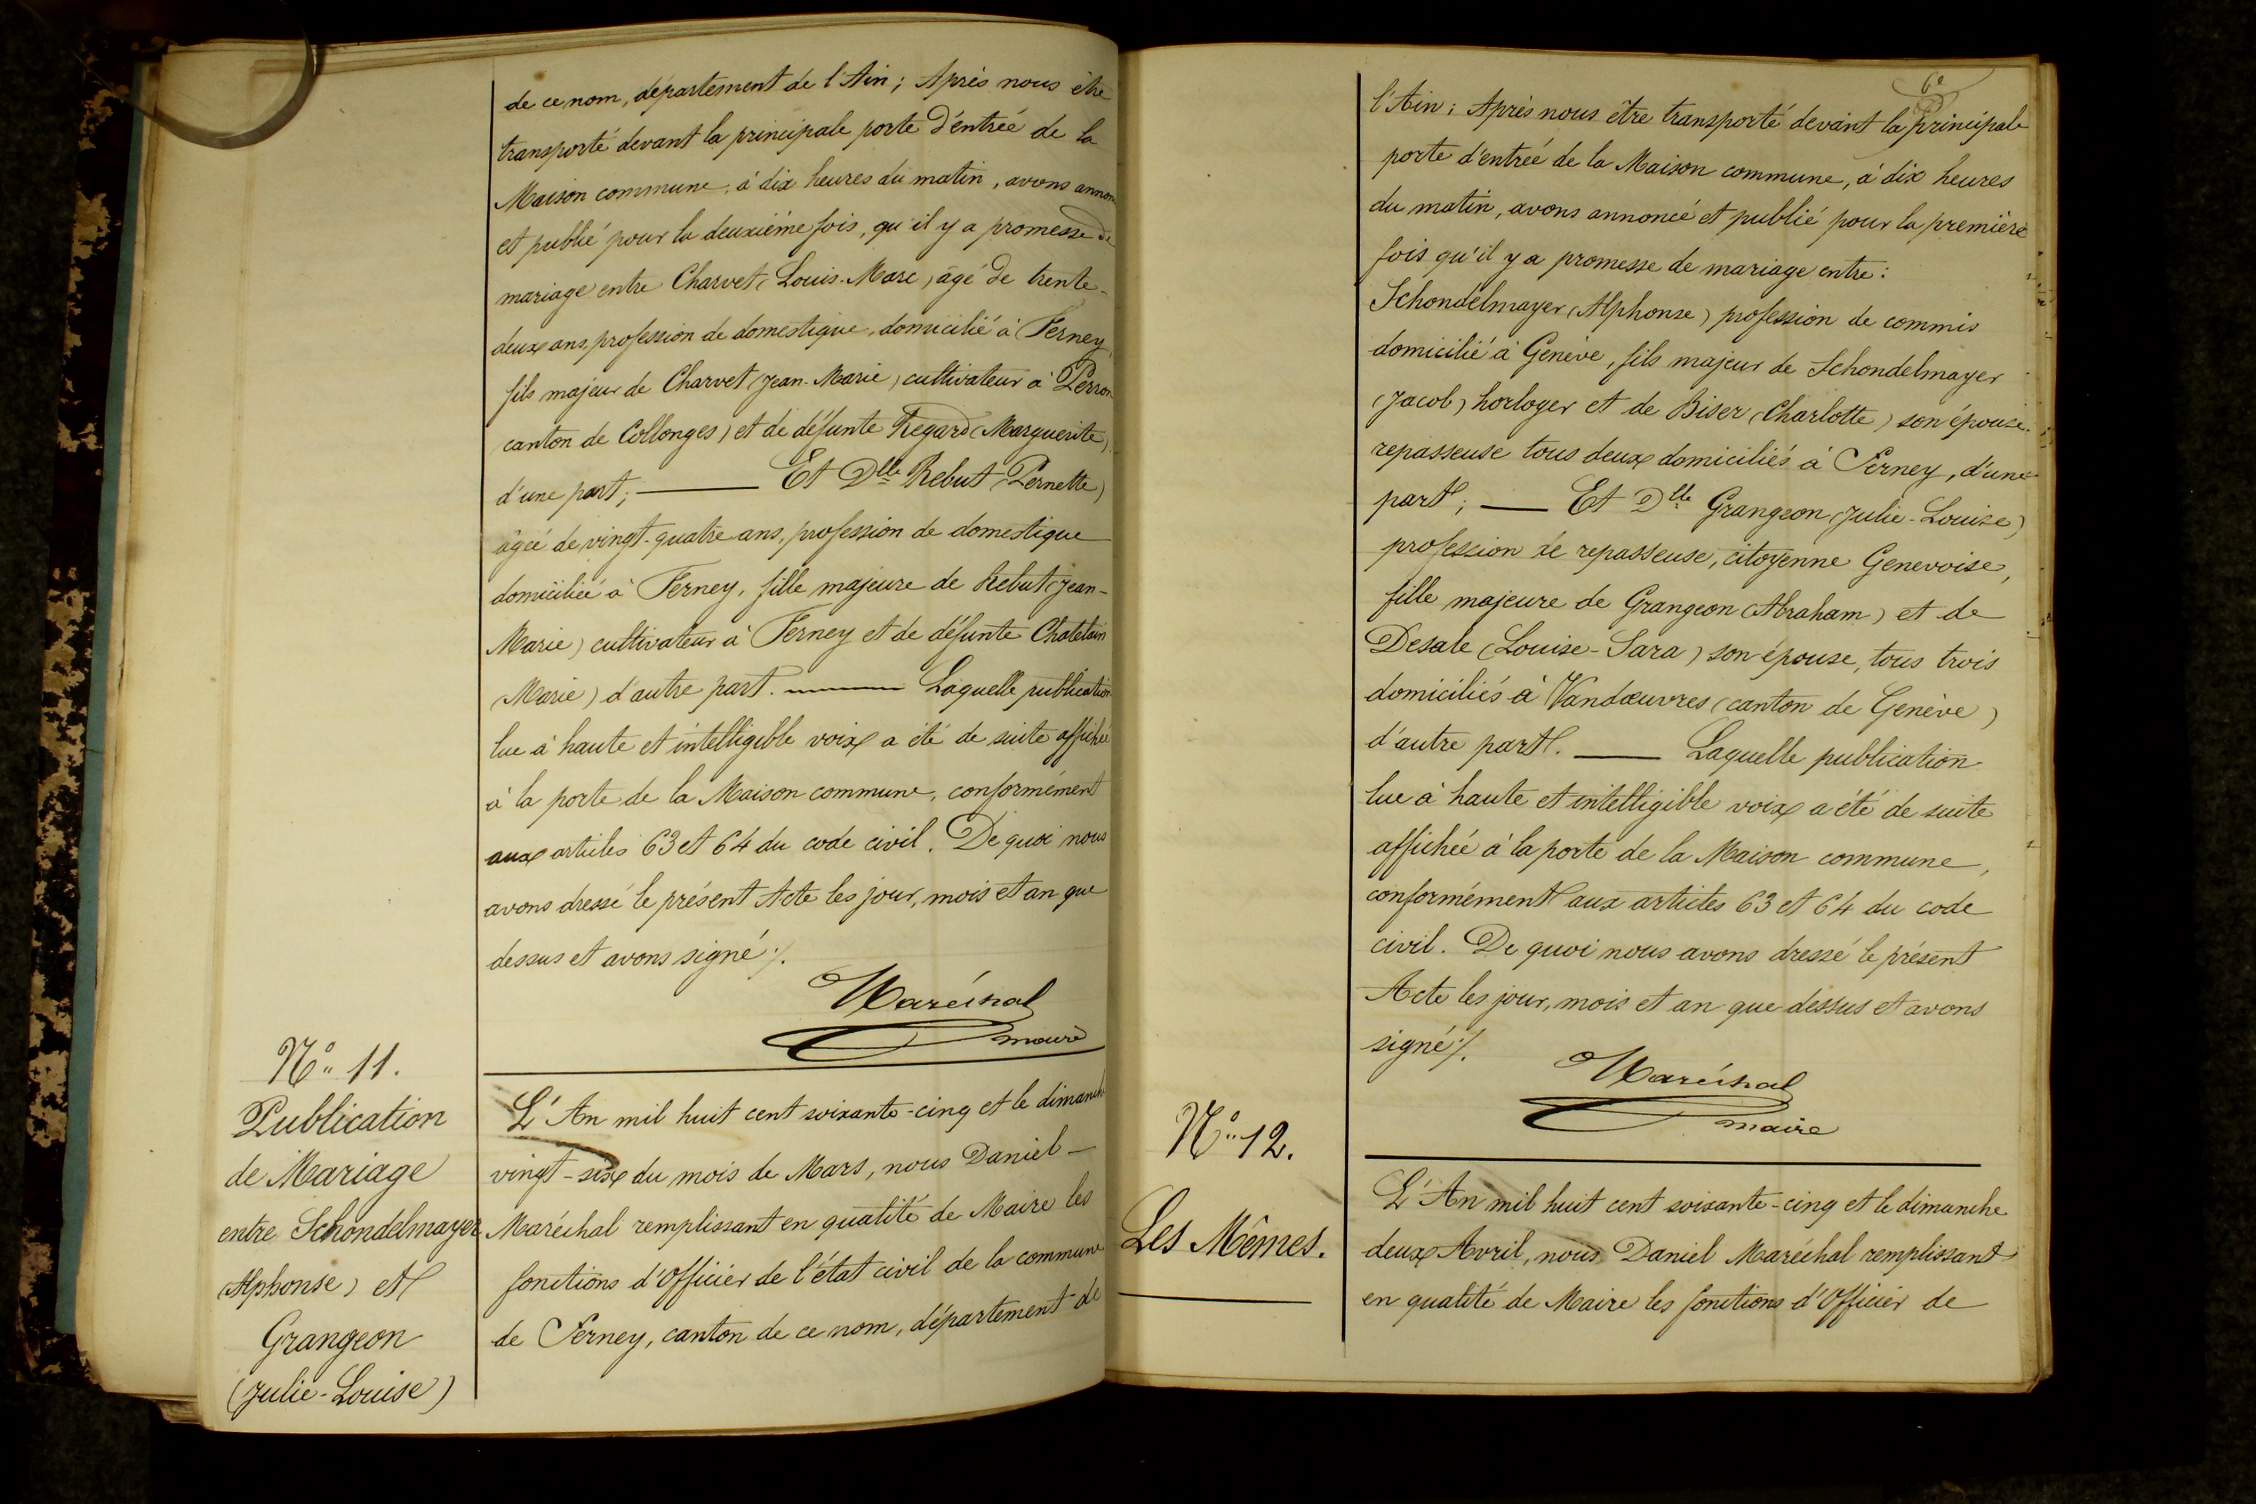 de ce nom, département de l'Ain; Après nous être
transporté devant la principale porte d'entrée de la
Maison commune, à dix heures du matin, avons annon
et publié pour la deuxième fois, qu'il y a promesse de
mariage entre Charvet (Louis-Marc) âgé de trente-
deux ans, profession de domestique, domicilié à Ferney,
fils majeur de Charvet (Jean-Marie) cultivateur à Perron
canton de Collonges) et de défunte Regard (Marguerite)
d'une part; — Et Dlle Rebut (Pernette)
âgée de vingt-quatre ans, profession de domestique
domiciliée à Ferney, fille majeure de Rebut (Jean-
Marie) cultivateur à Ferney et de défunte Chatelain
(Marie) d'autre part. — Laquelle publication
lue à haute et intelligible voix a été de suite affichée
à la porte de la Maison commune, conformément
aux articles 63 et 64 du code civil. De quoi nous
avons dressé le présent Acte les jour, mois et an que
dessus et avons signé ./.
Maréchal
maire
N° 11.
Publication
de Mariage
entre Schondelmayer
(Alphonse) et
Grangeon
(Julie-Louise)
L'An mil huit cent soixante-cinq et le dimanche
vingt-six du mois de Mars, nous Daniel —
Maréchal remplissant en qualité de Maire les
fonctions d'Officier de l'état civil de la commune
de Ferney, canton de ce nom, département de
6e
l'Ain; Après nous être transporté devant la principale
porte d'entrée de la Maison commune, à dix heures
du matin, avons annoncé et publié pour la première
fois qu'il y a promesse de mariage entre:
Schondelmayer (Alphonse) profession de commis
domicilié à Genève, fils majeur de Schondelmayer
(Jacob) horloger et de Biser (Charlotte) son épouse
repasseuse tous deux domiciliés à Ferney, d'une
part; — Et Dlle Grangeon (Julie-Louise)
profession de repasseuse, citoyenne Genevoise,
fille majeure de Grangeon (Abraham) et de
Desale (Louise-Sara) son épouse, tous trois
domiciliés à Vandœuvres (canton de Genève)
d'autre part. — Laquelle publication
lue à haute et intelligible voix a été de suite
affichée à la porte de la Maison commune,
conformément aux articles 63 et 64 du code
civil. De quoi nous avons dressé le présent
Acte les jour, mois et an que dessus et avons
signé ./.
Maréchal
maire
N° 12.
Les Mêmes.
L'An mil huit cent soixante-cinq et le dimanche
deux Avril, nous Daniel Maréchal remplissant
en qualité de Maire les fonctions d'Officier de